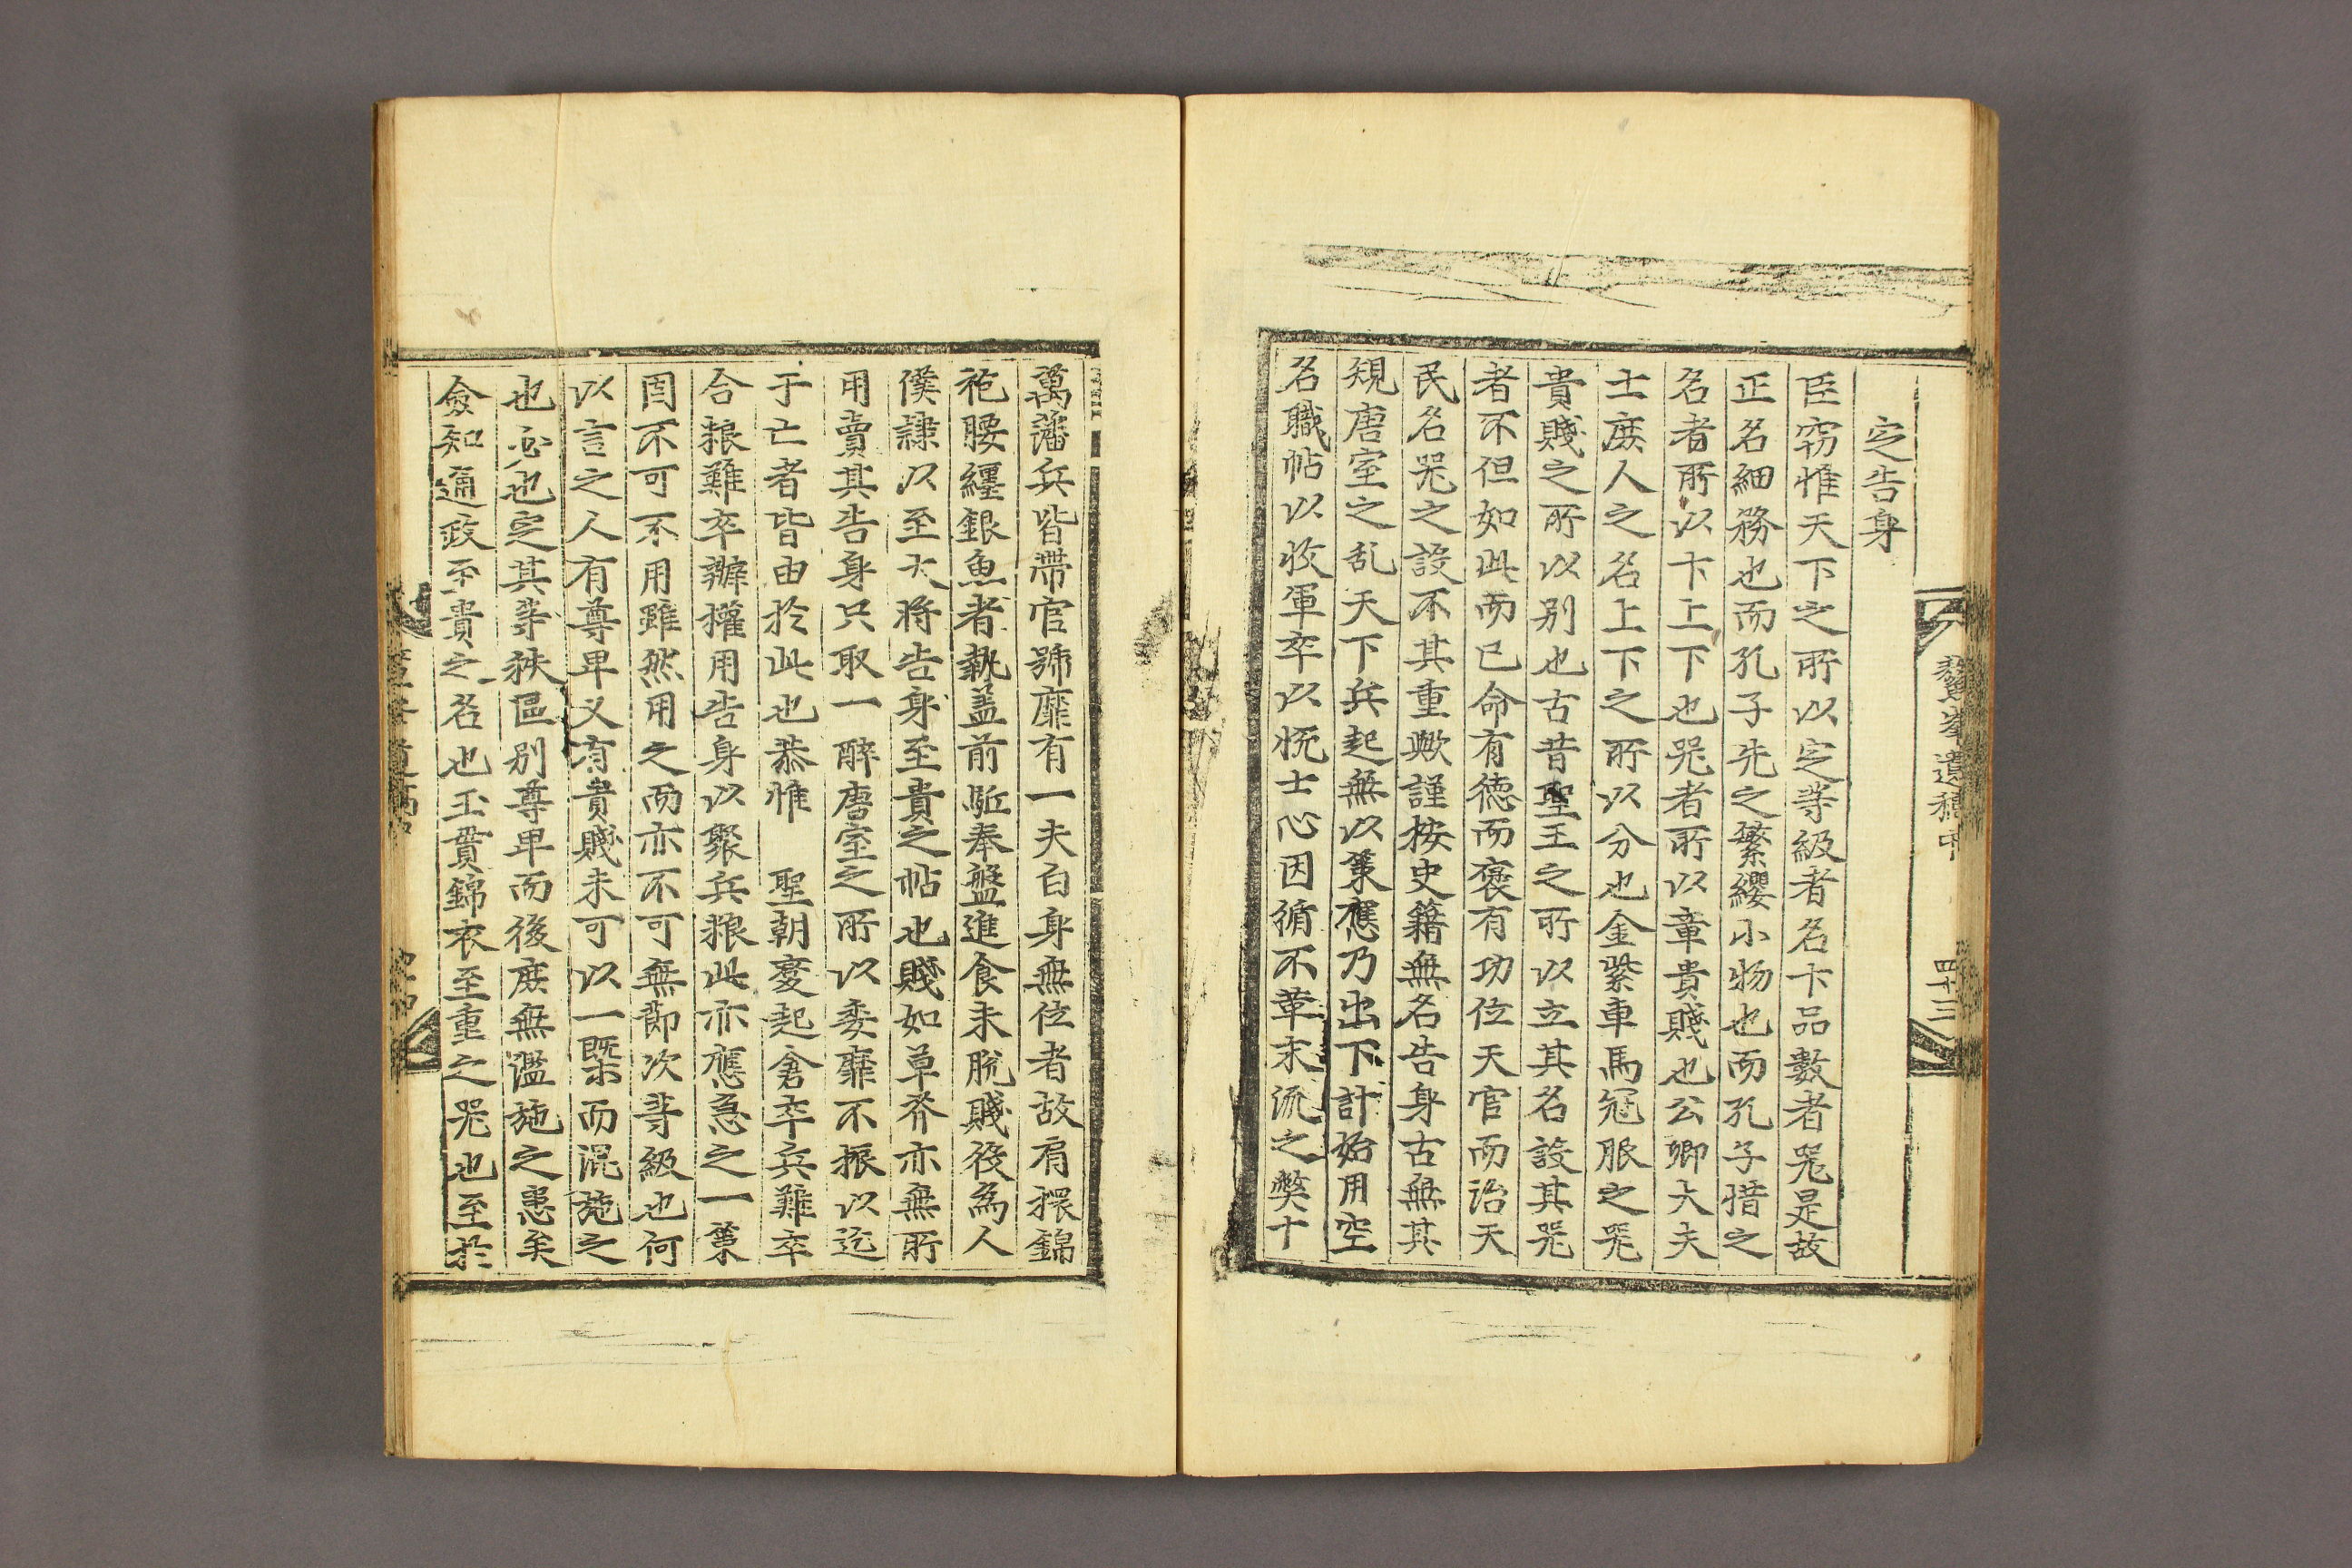 定告身
臣窃惟天下之所以定等級者名卞品數者噐是故
正名細務也而孔子先之繁纓小物也而孔子惜之
名者所以卞上下也噐者所以章貴賤也公卿大夫
士庶人之名上下之所以分也金紫車馬冠服之噐
貴賤之所以别也古昔聖王之所以立其名設其噐
者不但如此而已命有德而褒有功位天官而治天
民名噐之設不其重歟謹按史籍無名告身古無其
規唐室之乱天下兵起無以策應乃出下計始用空
名職帖以收軍卒以悦士心因循不革末流之弊十
鰲峯遺稿中
四十三
萬藩兵皆帶官號靡有一夫白身無位者故肩擐錦
袍腰纒銀魚者執盖前駈奉盤進食未脫賤役為人
僕隷以至大將告身至貴之帖也賤如草芥亦無所
用賣其告身只取一醉唐室之所以委靡不振以迄
于亡者皆由於此也恭惟 聖朝変起倉卒兵難卒
合粮難卒辦權用告身以聚兵粮此亦應急之一策
固不可不用雖然用之而亦不可無節次等級也何
以言之人有尊卑又有貴賤未可以一槩而混施之
也必也定其等秩區别尊卑而後庶無濫施之患矣
僉知通政至貴之名也玉貫錦衣至重之噐也至於